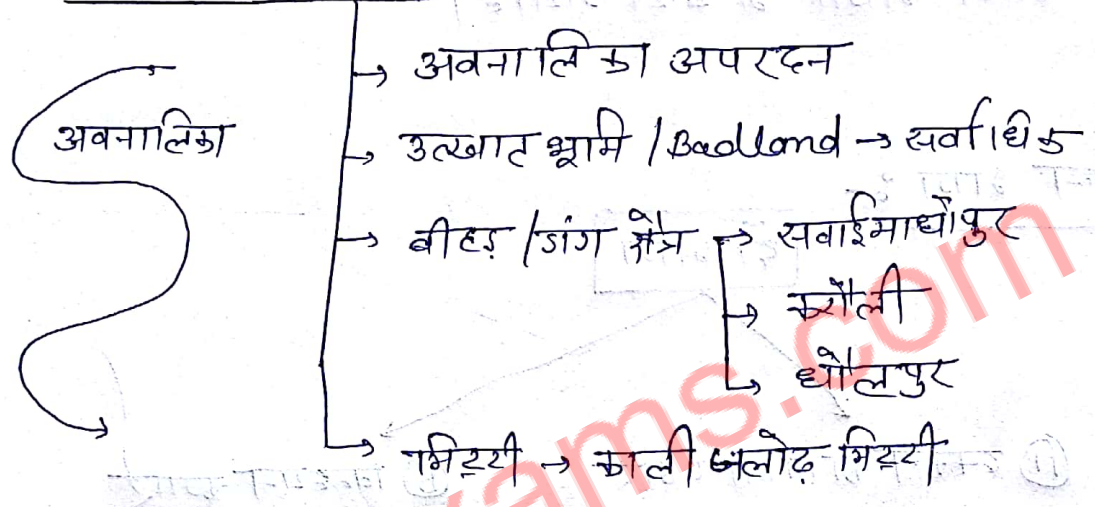 → अवनालिका अपरदन
अवनालिका
→ उत्खात भूमि / Badland → सर्वाधिक
→ बीहड़ / डांग क्षेत्र → सवाईमाधोपुर
→ करौली
→ धौलपुर
→ मिट्टी → काली जलोढ़ मिट्टी
ams.com